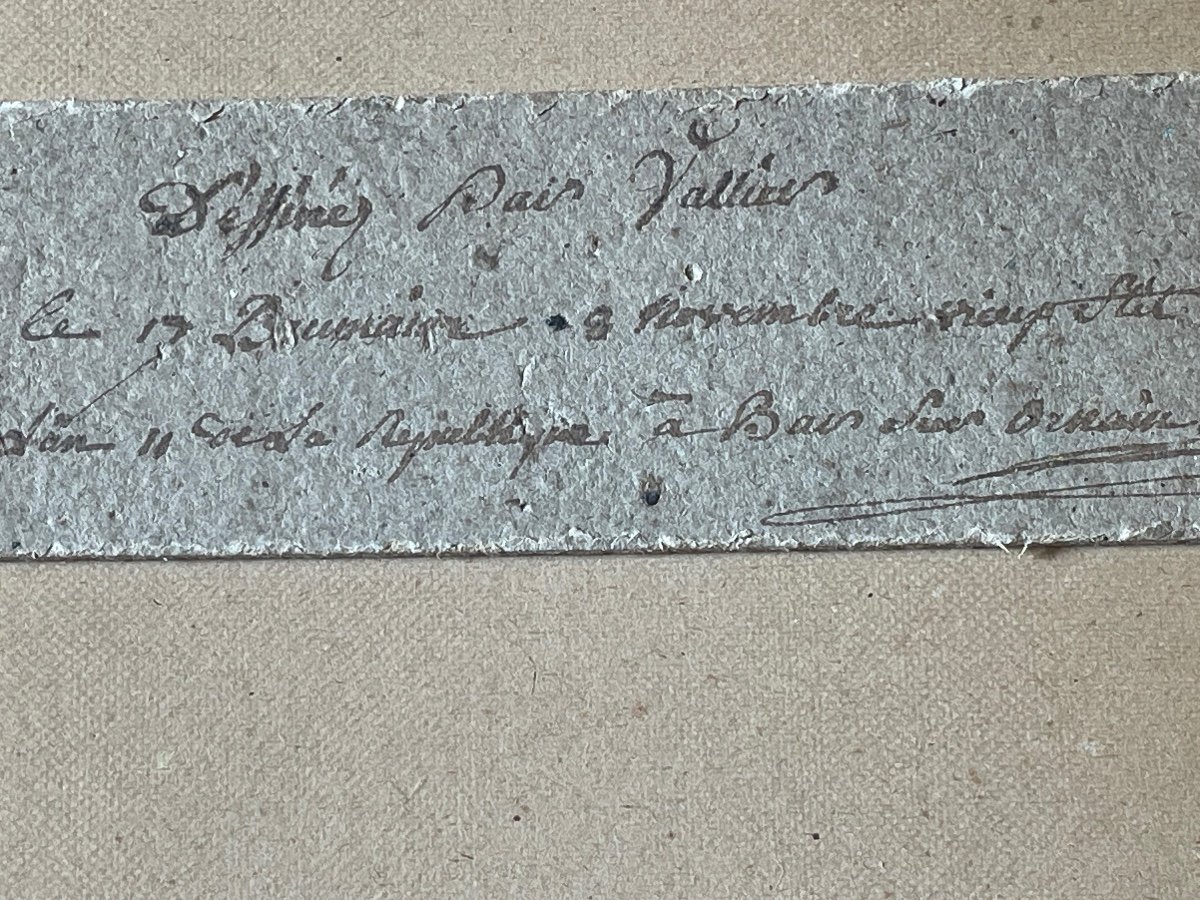 Dessinéz Par Vallier
le 17 Brumaire 8 Novembre vieux stil
L'an 11 de la Republique à Bar sur Ornain